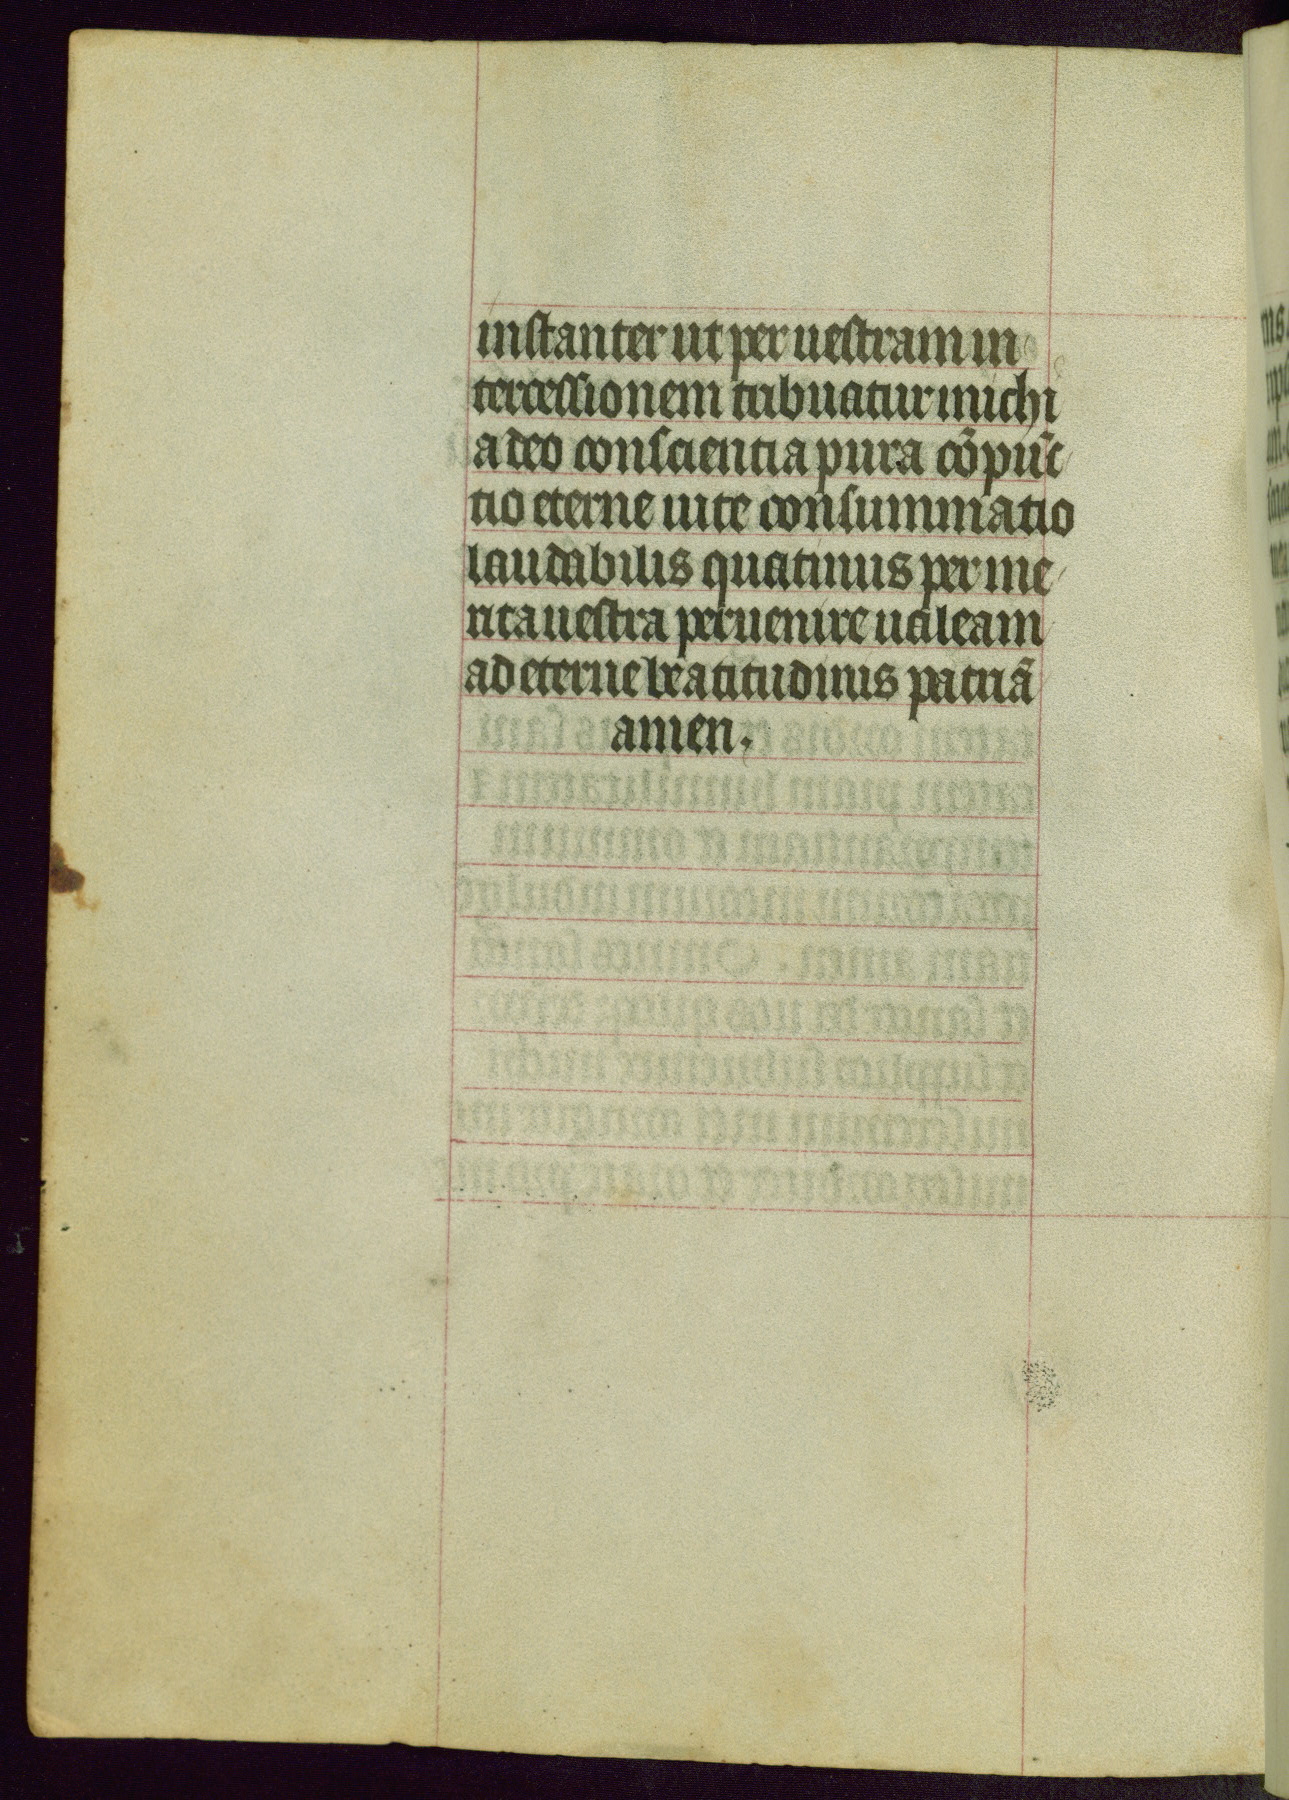 instanter ut per uestram in
tercessionem tribuatur michi
a deo conscientia pura cõpũc
tio eterne uite consummatio
laudabilis quatinus per me
rita uestra peruenire ualeam
ad eterne beatitudinis patriã
amen.